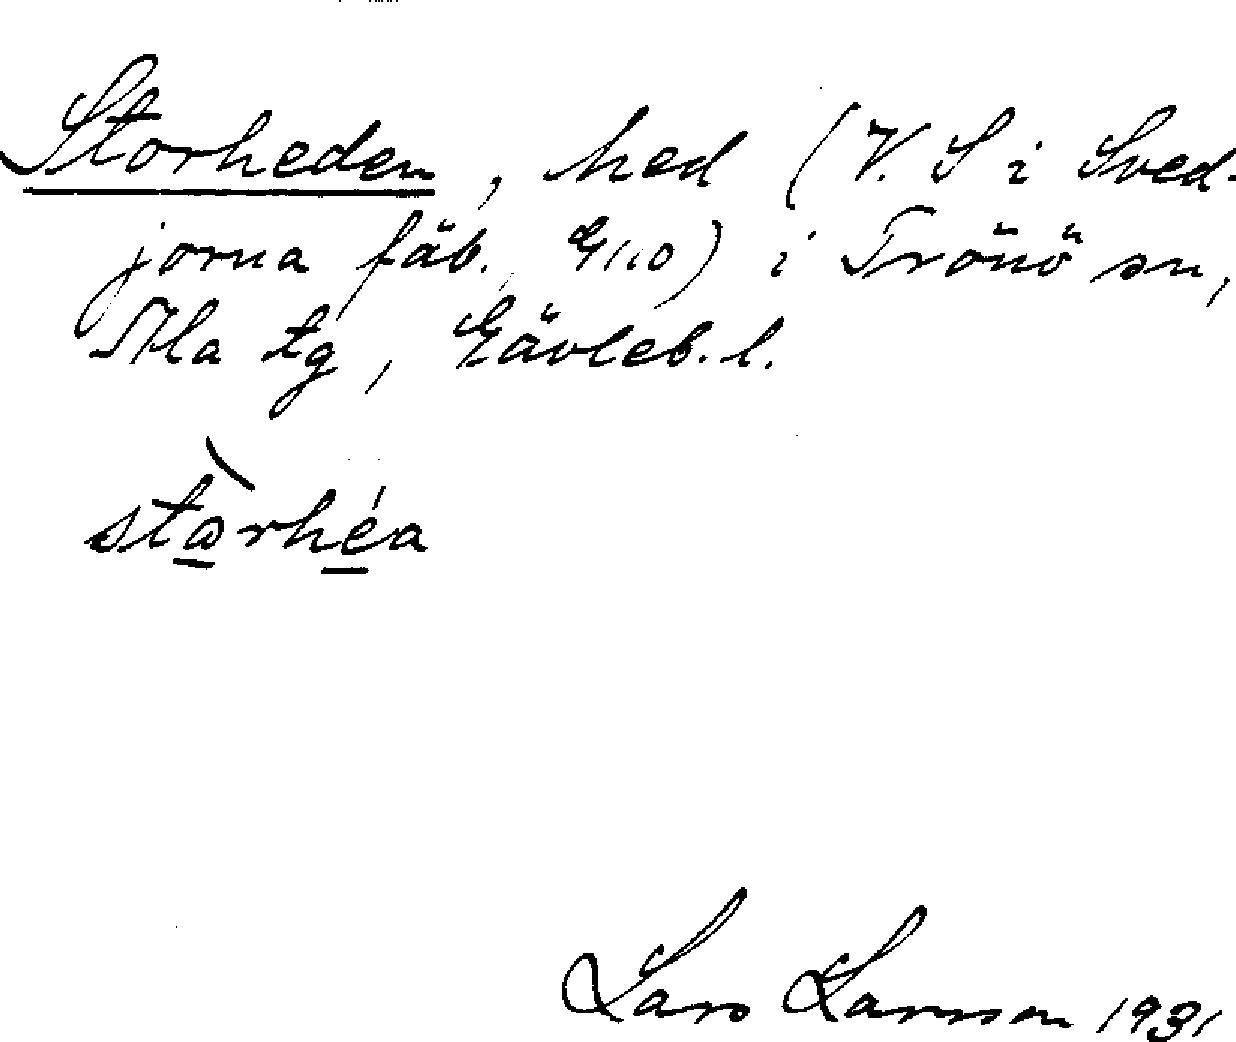 Storheden, hed (V. S i Sved-
jorna fäb. G110) i Trönö sn,
Ala tg, Gävleb. l.
stòrhéa
Lars Larsson 1931